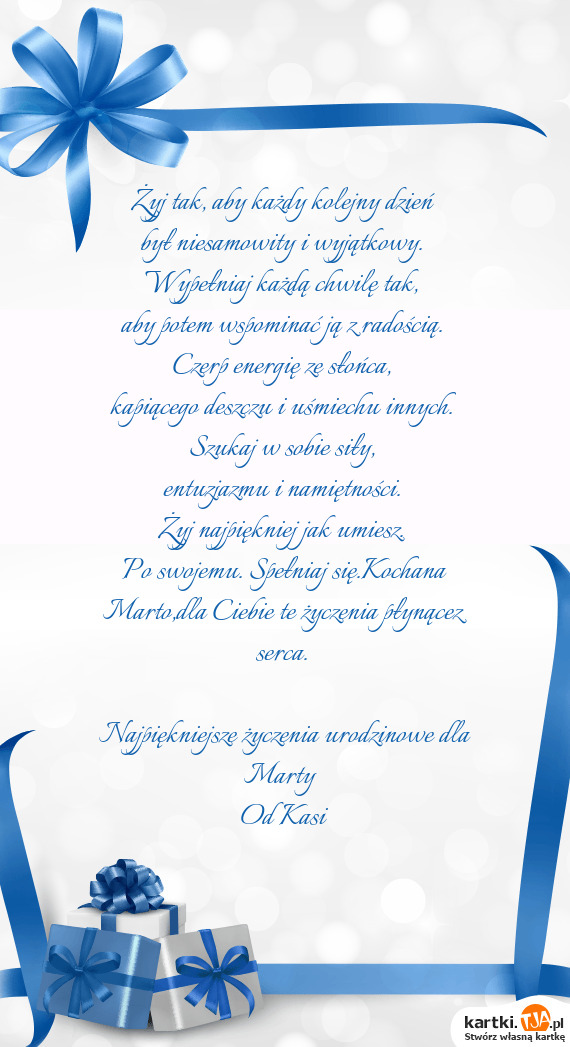 Żyj tak, aby każdy kolejny dzień
był niesamowity i wyjątkowy.
Wypełniaj każdą chwilę tak,
aby potem wspominać ją z radością.
Czerp energię ze słońca,
kapiącego deszczu i uśmiechu innych.
Szukaj w sobie siły,
entuzjazmu i namiętności.
Żyj najpiękniej jak umiesz.
Po swojemu. Spełniaj się.Kochana
Marto,dla Ciebie te życzenia płynącez
serca.
Najpiękniejsze życzenia urodzinowe dla
Marty
Od Kasi
kartki.TJA.pl
Stwórz własną kartkę